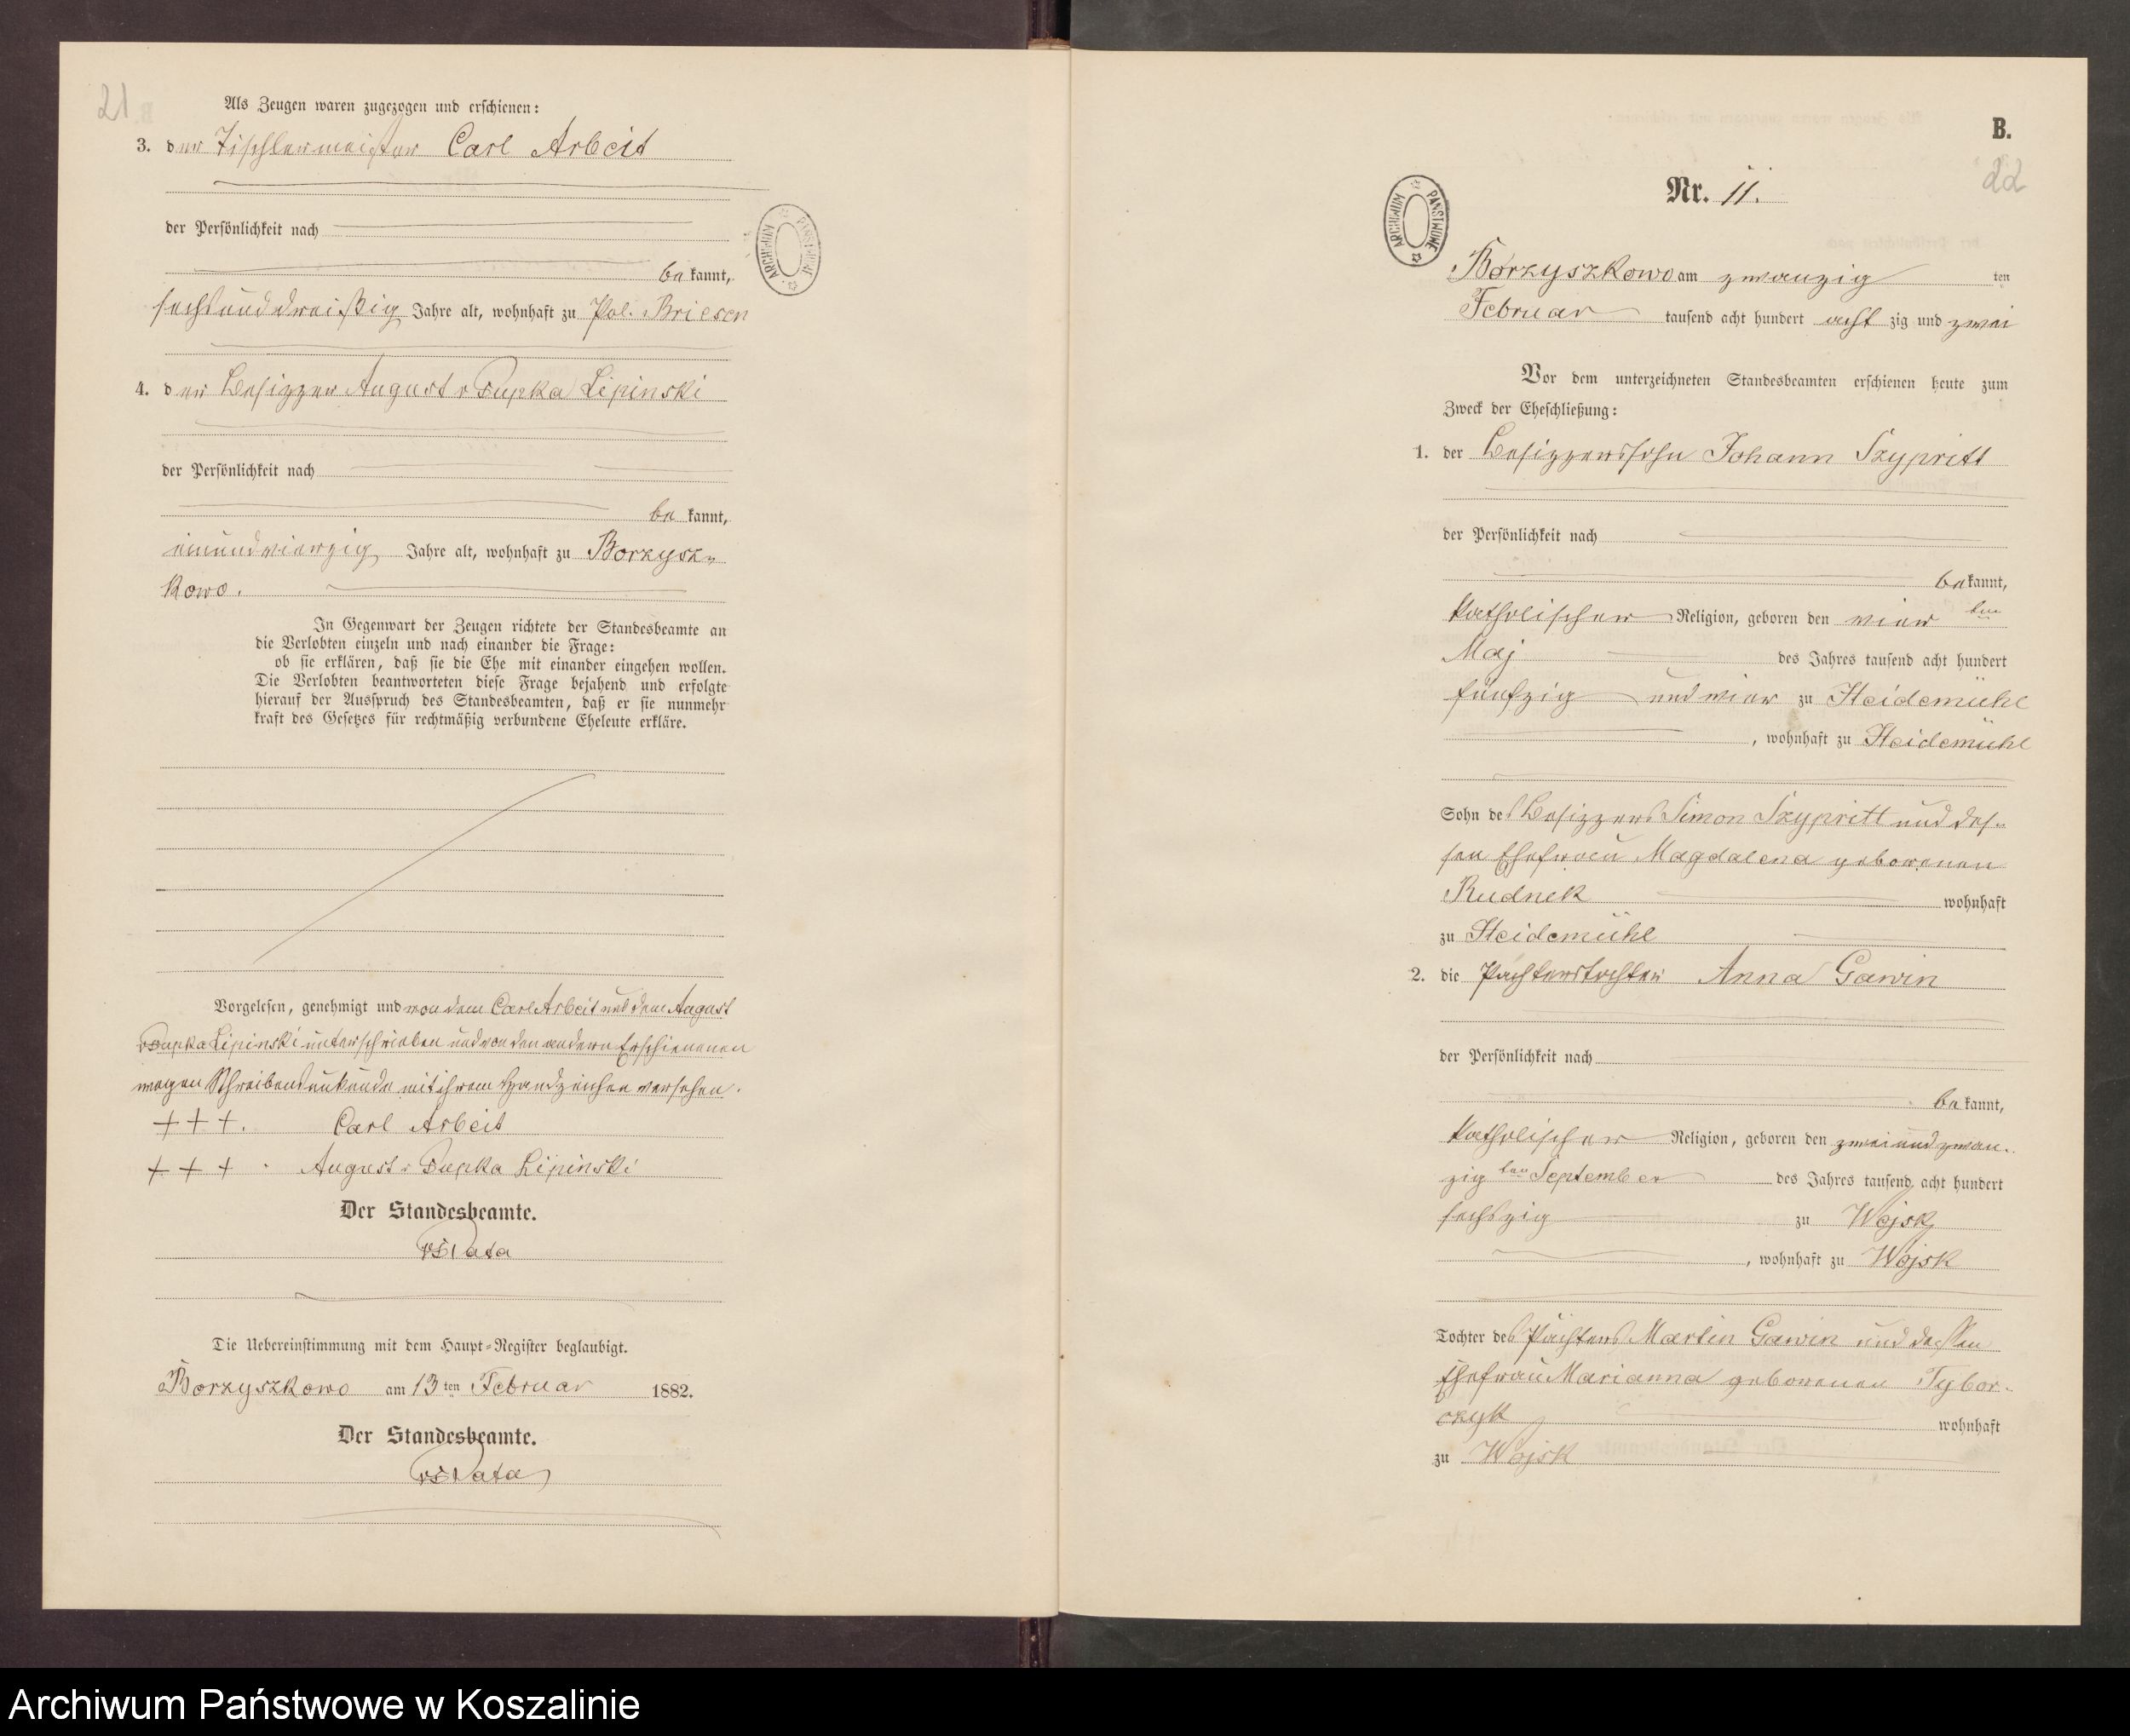 21
Als Zeugen waren zugezogen und erschienen:
3. der Tischlermeister Carl Arbeit
der Persönlichkeit nach
be kannt,
sechsunddreißig Jahre alt, wohnhaft zu Pol. Briesen
4. der Besitzer August v Pupka Lipinski
der Persönlichkeit nach
be kannt,
einundvierzig Jahre alt, wohnhaft zu Borzysz-
kowo.
In Gegenwart der Zeugen richtete der Standesbeamte an
die Verlobten einzeln und nach einander die Frage:
ob sie erklären, daß sie die Ehe mit einander eingehen wollen.
Die Verlobten beantworteten diese Frage bejahend und erfolgte
hierauf der Ausspruch des Standesbeamten, daß er sie nunmehr
kraft des Gesetzes für rechtmäßig verbundene Eheleute erkläre.
Vorgelesen, genehmigt und von dem Carl Arbeit und dem August
v Pupka Lipinski unterschrieben und von den andern Erschienenen
wegen Schreibensunkunde mit ihrem Handzeichen versehen.
+++. Carl Arbeit
+++. August v Pupka Lipinski
Der Standesbeamte.
Die Uebereinstimmung mit dem Haupt-Register beglaubigt.
Borzyszkowo am 13 ten Februar 1882.
Der Standesbeamte.
ARCHIWUM PAŃSTWOWE
B.
22
Nr. 11.
ARCHIWUM PAŃSTWOWE
Borzyszkowo am zwanzig ten
Februar tausend acht hundert acht zig und zwei
Vor dem unterzeichneten Standesbeamten erschienen heute zum
Zweck der Eheschließung:
1. der Besitzerssohn Johann Szypritt
der Persönlichkeit nach
be kannt,
katholischer Religion, geboren den vier ten
Maj des Jahres tausend acht hundert
fünfzig und vier zu Heidemühl
, wohnhaft zu Heidemühl
Sohn des Besitzers Simon Szypritt und des-
sen Ehefrau Magdalena geborenen
Rudnek wohnhaft
zu Heidemühl
2. die Pächterstochter Anna Gawin
der Persönlichkeit nach
be kannt,
katholischer Religion, geboren den zweiundzwan-
zig ten September des Jahres tausend acht hundert
sechszig zu Wojsk
, wohnhaft zu Wojsk
Tochter des Pächters Martin Gawin und dessen
Ehefrau Marianna geborenen Tybor-
czyk wohnhaft
zu Wojsk
Archiwum Państwowe w Koszalinie